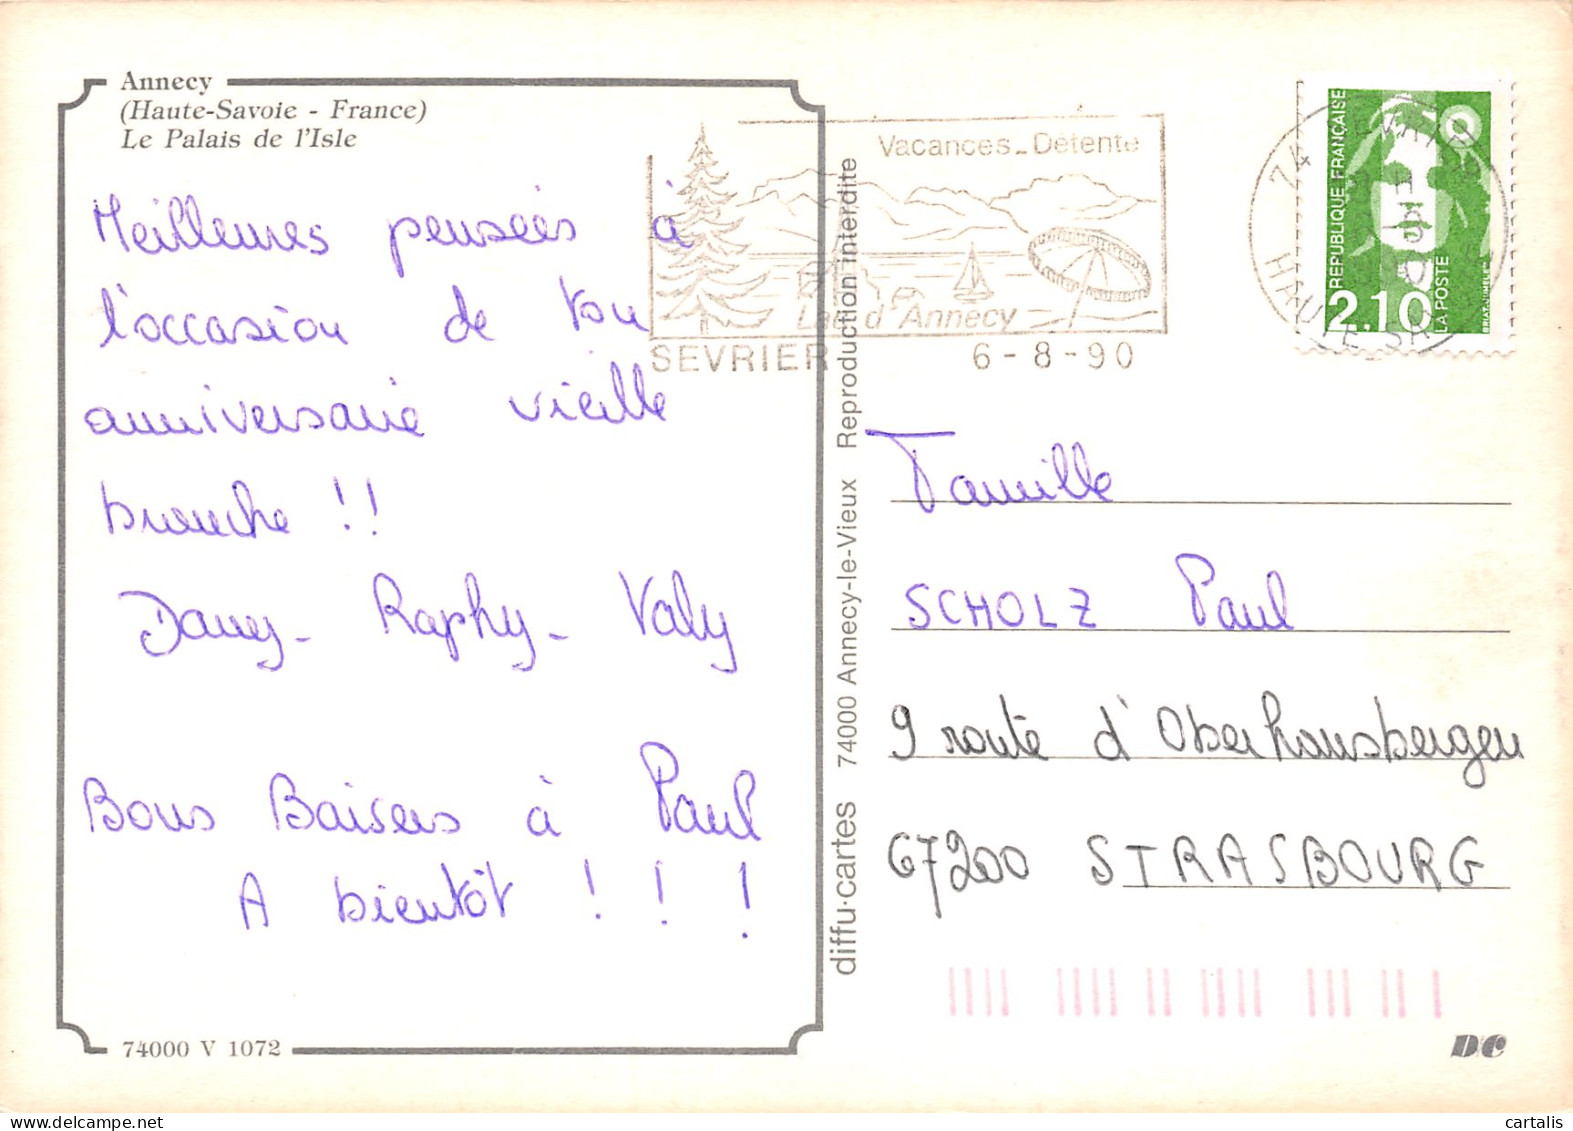 Annecy
(Haute-Savoie - France)
Le Palais de l'Isle
Meilleures pensées à
l'occasion de ton
anniversaire vieille
branche !!
Dany - Raphy - Valy
Bons Baisers à Paul
A bientôt ! ! !
74000 V 1072
diffu·cartes 74000 Annecy-le-Vieux Reproduction interdite
Vacances_Détente
Lac d'Annecy
SEVRIER 6-8-90
74
HAUTE SA
RÉPUBLIQUE FRANÇAISE
2,10
LA POSTE
BRIAT.JUMELET
Famille
SCHOLZ Paul
9 route d'Oberhausbergen
67200 STRASBOURG
DC
cartalis
www.delcampe.net